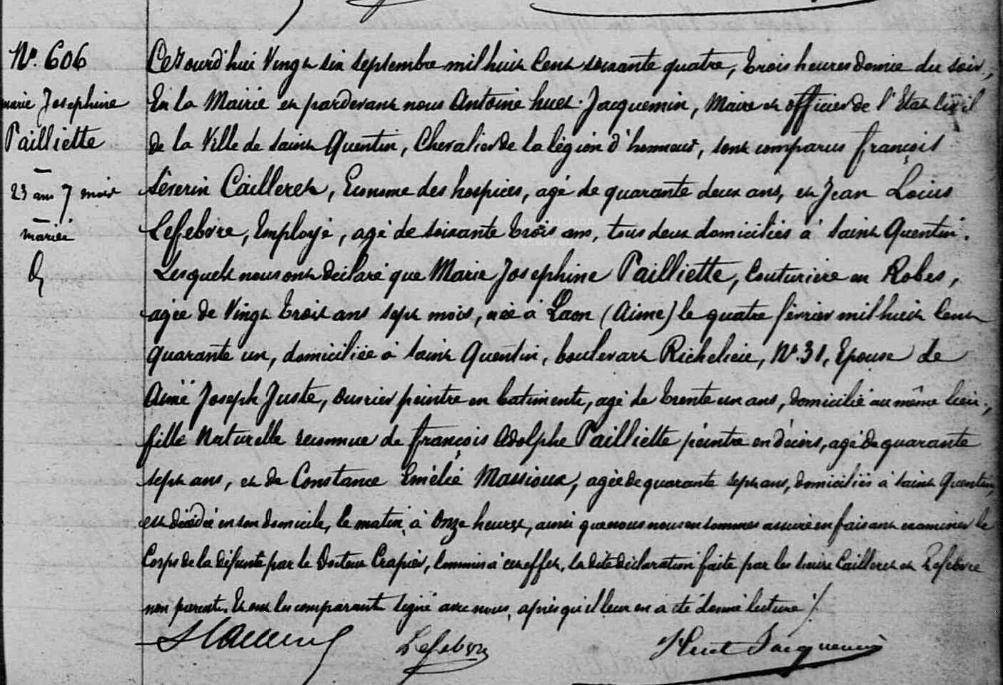 N°. 606
Marie Josephine
Pailliette
23 ans 7 mois
mariée
Cejourd'hui Vingt six septembre mil huit Cent soixante quatre, trois heures demie du soir,
En la Mairie et pardevant nous Antoine huet-Jacquemin, Maire et officier de l'Etat Civil
de la Ville de Saint Quentin, Chevalier de la légion d'honneur, sont comparus françois
Séverin Cailleret, Econome des hospices, agé de quarante deux ans, et Jean Louis
Lefebvre, Employé, agé de soixante trois ans, tous deux domiciliés à Saint Quentin.
Lesquels nous ont déclaré que Marie Josephine Pailliette, Couturière en Robes,
agée de Vingt trois ans sept mois, née à Laon (Aisne) le quatre février mil huit Cent
quarante un, domiciliée à Saint Quentin, boulevart Richelieu, N°. 31, Epouse de
Aimé Joseph Juste, ouvrier peintre en batiments, agé de trente un ans, domicilié au même lieu,
fille Naturelle reconnue de françois Adolphe Pailliette peintre en décors, agé de quarante
sept ans, et de Constance Emélie Massioux, agée de quarante sept ans, domiciliés à Saint Quentin,
est décédée en son domicile, le matin, à Onze heures, ainsi que nous nous en sommes assuré en faisant examiner le
Corps de la défunte par le Docteur Crapier, Commis à cet effet, la dite déclaration faite par les sieurs Cailleret et Lefebvre
non parents. Et ont les comparants signé avec nous, après qu'il leur en a été donné lecture /.
Lefebvre
Huet Jacquemin